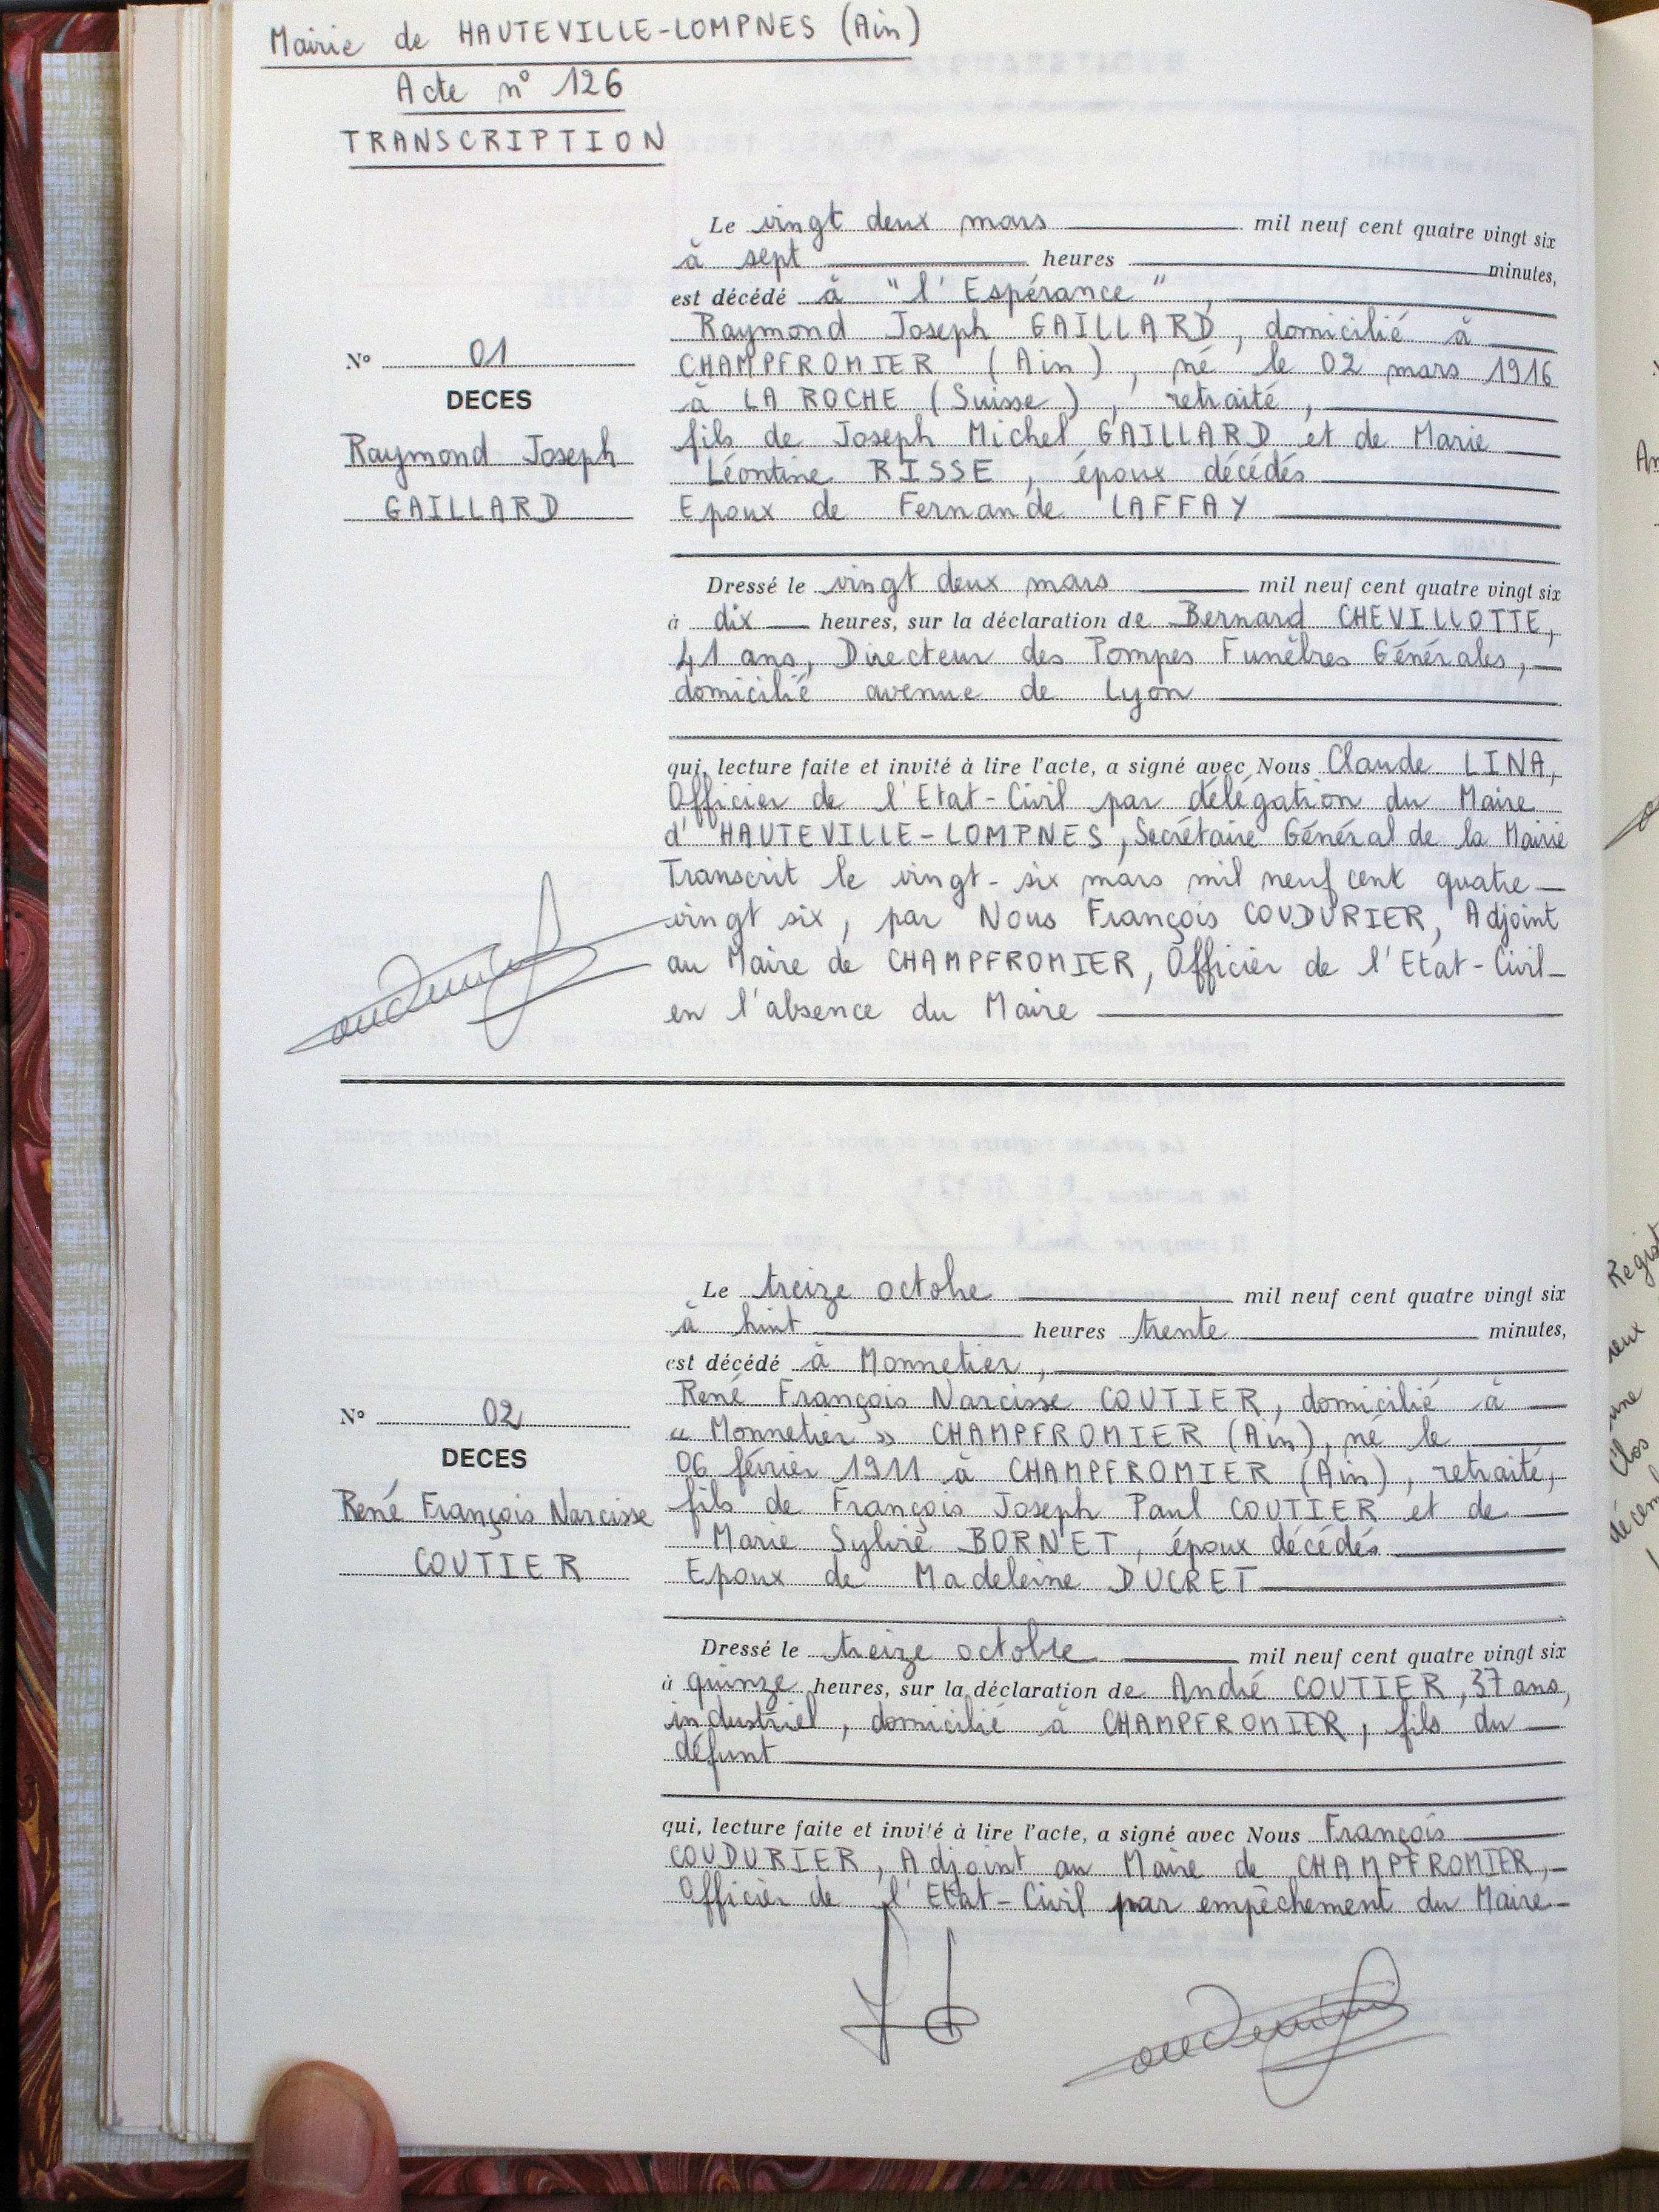 Mairie de HAUTEVILLE-LOMPNES (Ain)
Acte n° 126
TRANSCRIPTION
Le vingt deux mars mil neuf cent quatre vingt six
à sept heures minutes,
est décédé à "l'Espérance",
Raymond Joseph GAILLARD, domicilié à
N° 01
CHAMPFROMIER (Ain), né le 02 mars 1916
DECES
à LA ROCHE (Suisse), retraité,
Raymond Joseph
fils de Joseph Michel GAILLARD et de Marie
Léontine RISSE, époux décédés
GAILLARD
Epoux de Fernande LAFFAY
Dressé le vingt deux mars mil neuf cent quatre vingt six
à dix heures, sur la déclaration de Bernard CHEVILLOTTE,
41 ans, Directeur des Pompes Funèbres Générales,
domicilié avenue de Lyon
qui, lecture faite et invité à lire l'acte, a signé avec Nous Claude LINA,
Officier de l'Etat-Civil par délégation du Maire
d'HAUTEVILLE-LOMPNES, Secrétaire Général de la Mairie
Transcrit le vingt-six mars mil neuf cent quatre
vingt six, par Nous François COUDURIER, Adjoint
au Maire de CHAMPFROMIER, Officier de l'Etat-Civil
en l'absence du Maire
Le treize octobre mil neuf cent quatre vingt six
à huit heures trente minutes,
est décédé à Monnetier,
René François Narcisse COUTIER, domicilié à
N° 02
« Monnetier » CHAMPFROMIER (Ain), né le
DECES
06 février 1911 à CHAMPFROMIER (Ain), retraité,
René François Narcisse
fils de François Joseph Paul COUTIER et de
Marie Sylvie BORNET, époux décédés
COUTIER
Epoux de Madeleine DUCRET
Dressé le treize octobre mil neuf cent quatre vingt six
à quinze heures, sur la déclaration de André COUTIER, 37 ans,
industriel, domicilié à CHAMPFROMIER, fils du
défunt
qui, lecture faite et invité à lire l'acte, a signé avec Nous François
COUDURIER, Adjoint au Maire de CHAMPFROMIER,
Officier de l'Etat-Civil par empêchement du Maire